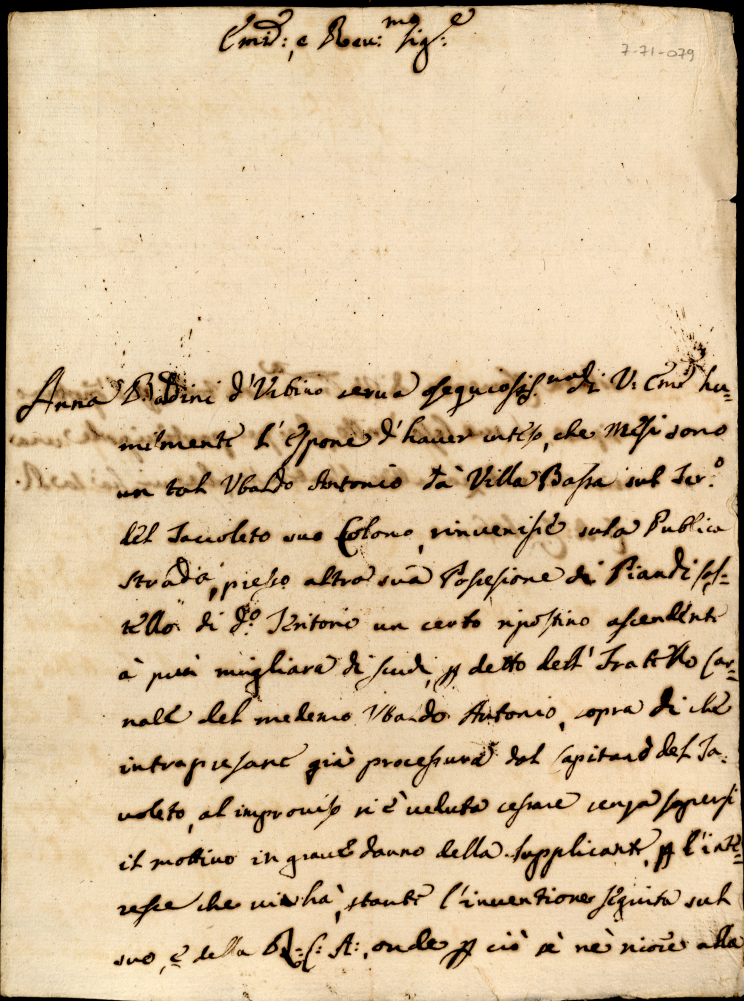 Em.: e Rev.mo Sig.e
7-71-079
Anna Baldini d'Urbino serva ossequiosiss.ma di V: Em. hu=
milmente l'espone d'haver inteso, che mesi sono
un tal Ubaldo Antonio da Villa Bassa sul Ter.o
del Tavoleto suo Colono, rinvenisse sula Publica
strada, presso altra sua Possesione di Piandi Cas=
tello di d.o Teritorio un certo ripostino ascendente
à più migliara di scudi, p detto dell' Fratello Car=
nale del medemo Ubaldo Antonio, sopra di che
intrapresane già processura dal Capitano del Ta:
voleto, al improviso si è veduta cessare senza sapersi
il mottivo in grave danno della supplicante, p l'inte=
resse che vi hà, stante l'inventione seguita sul
suo, e della R: C: A:, onde p ciò sè nè ricore alla